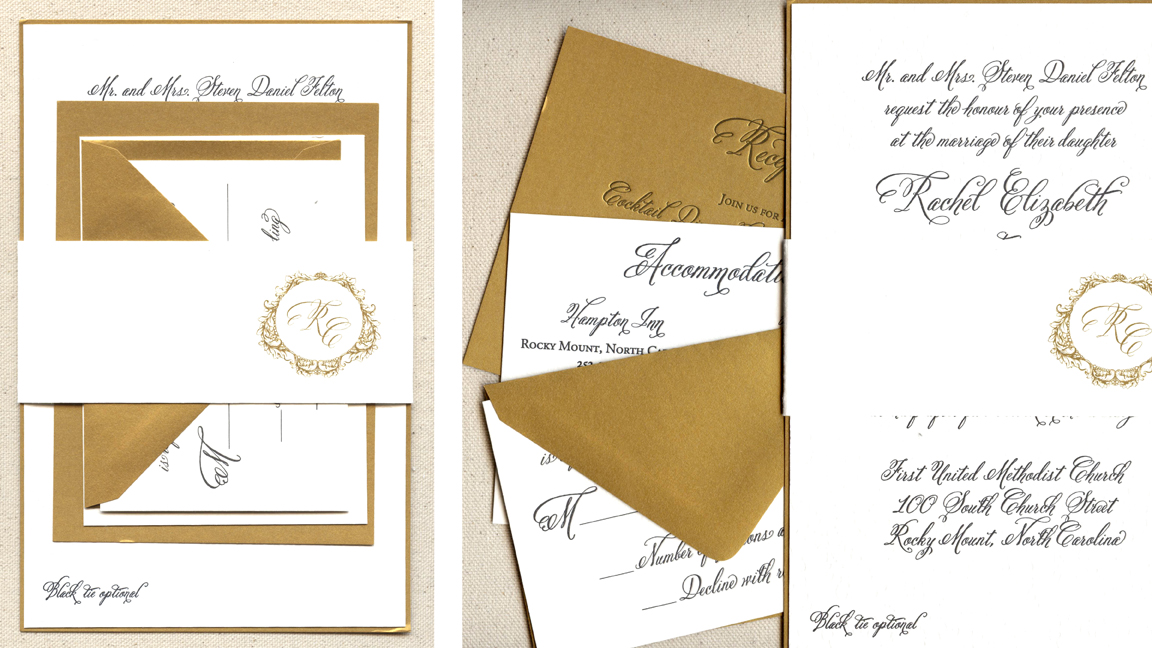 Mr. and Mrs. Steven Daniel Felton
RC
M
Black tie optional
Cocktail
Join us for
Accommodati
Hampton Inn
Rocky Mount, North Ca
252
M
Number of
Decline with r
Mr. and Mrs. Steven Daniel Felton
request the honour of your presence
at the marriage of their daughter
Rachel Elizabeth
RC
First United Methodist Church
100 South Church Street
Rocky Mount, North Carolina
Black tie optional